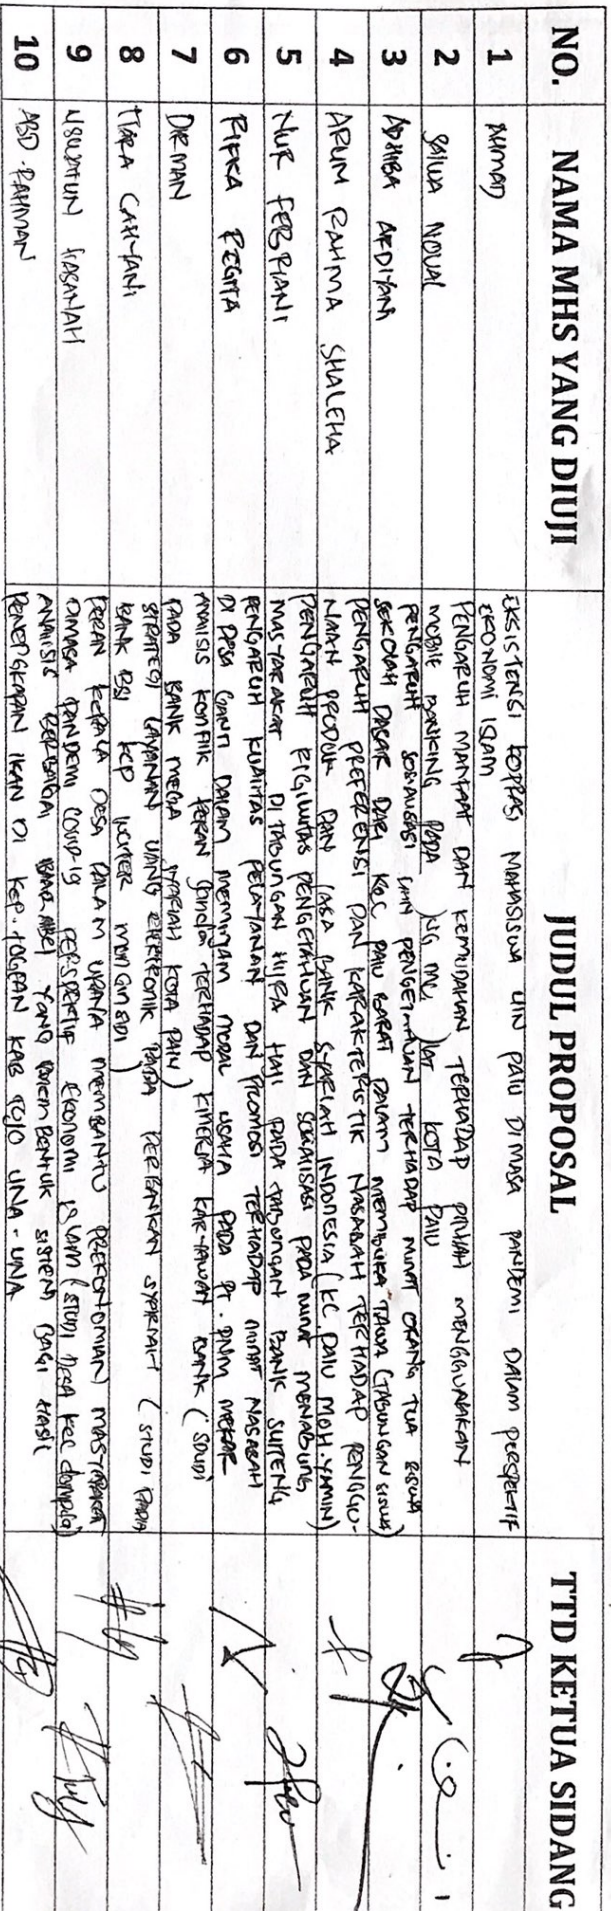 NO. NAMA MHS YANG DIUJI JUDUL PROPOSAL TTD KETUA SIDANG
1 AHMAD EKSISTENSI KOPRASI MAHASISWA UIN PALU DIMASA PANDEMI DALAM PERSPEKTIF
EKONOMI ISLAM
2 SALWA NOVAL PENGARUH MANFAAT DAN KEMUDAHAN TERHADAP PILIHAN MENGGUNAKAN
MOBILE BANKING PADA KOTA PALU
3 ADHIBA ARDIYANI PENGARUH SOSIALISASI DAN PENGETAHUAN TERHADAP MINAT ORANG TUA SISWA
SEKOLAH DASAR DARI KEC PALU BARAT DALAM MEMBUKA TAWA (TABUNGAN SISWA)
4 ARUM RAHMA SHALEHA PENGARUH PREFERENSI DAN KARAKTERISTIK NASABAH TERHADAP PENGGU-
NAAN PRODUK DAN JASA BANK SYARIAH INDONESIA (KC. PALU MOH. YAMIN)
5 NUR FEBRIANI PENGARUH RIGIULITAS PENGETAHUAN DAN SOSIALISASI PADA MINAT MENABUNG
MASYARAKAT DI TABUNGAN HAJI PADA TABUNGAN BANK SULTENG
6 RIFKA REGITA PENGARUH KUALITAS PELAYANAN DAN PROMOSI TERHADAP MINAT NASABAH
DI DESA GANTI DALAM MEMINJAM MODAL USAHA PADA PT. PNM MEKAR
7 DIRMAN ANALISIS KONFLIK PERAN GANDA TERHADAP KINERJA KARYAWAN BANK (STUDI
PADA BANK MEGA SYARIAH KOTA PALU)
8 TIARA CAHYANI STRATEGI LAYANAN UANG ELEKTRONIK PADA PERBANKAN SYARIAH (STUDI PADA
BANK BSI KCP WOLTER MONGINSIDI)
9 USWATUN HASANAH PERAN KEPALA DESA DALAM UPAYA MEMBANTU PEREKONOMIAN MASYARAKAT
DIMASA PANDEMI COVID-19 PERSPEKTIF EKONOMI ISLAM (STUDI DESA KEC DAMPELAS)
10 ABD. RAHMAN ANALISIS BERBAGAI VARIABEL YANG MEMBENTUK SISTEM BAGI HASIL
PENANGKAPAN IKAN DI KEP. TOGEAN KAB TOJO UNA-UNA